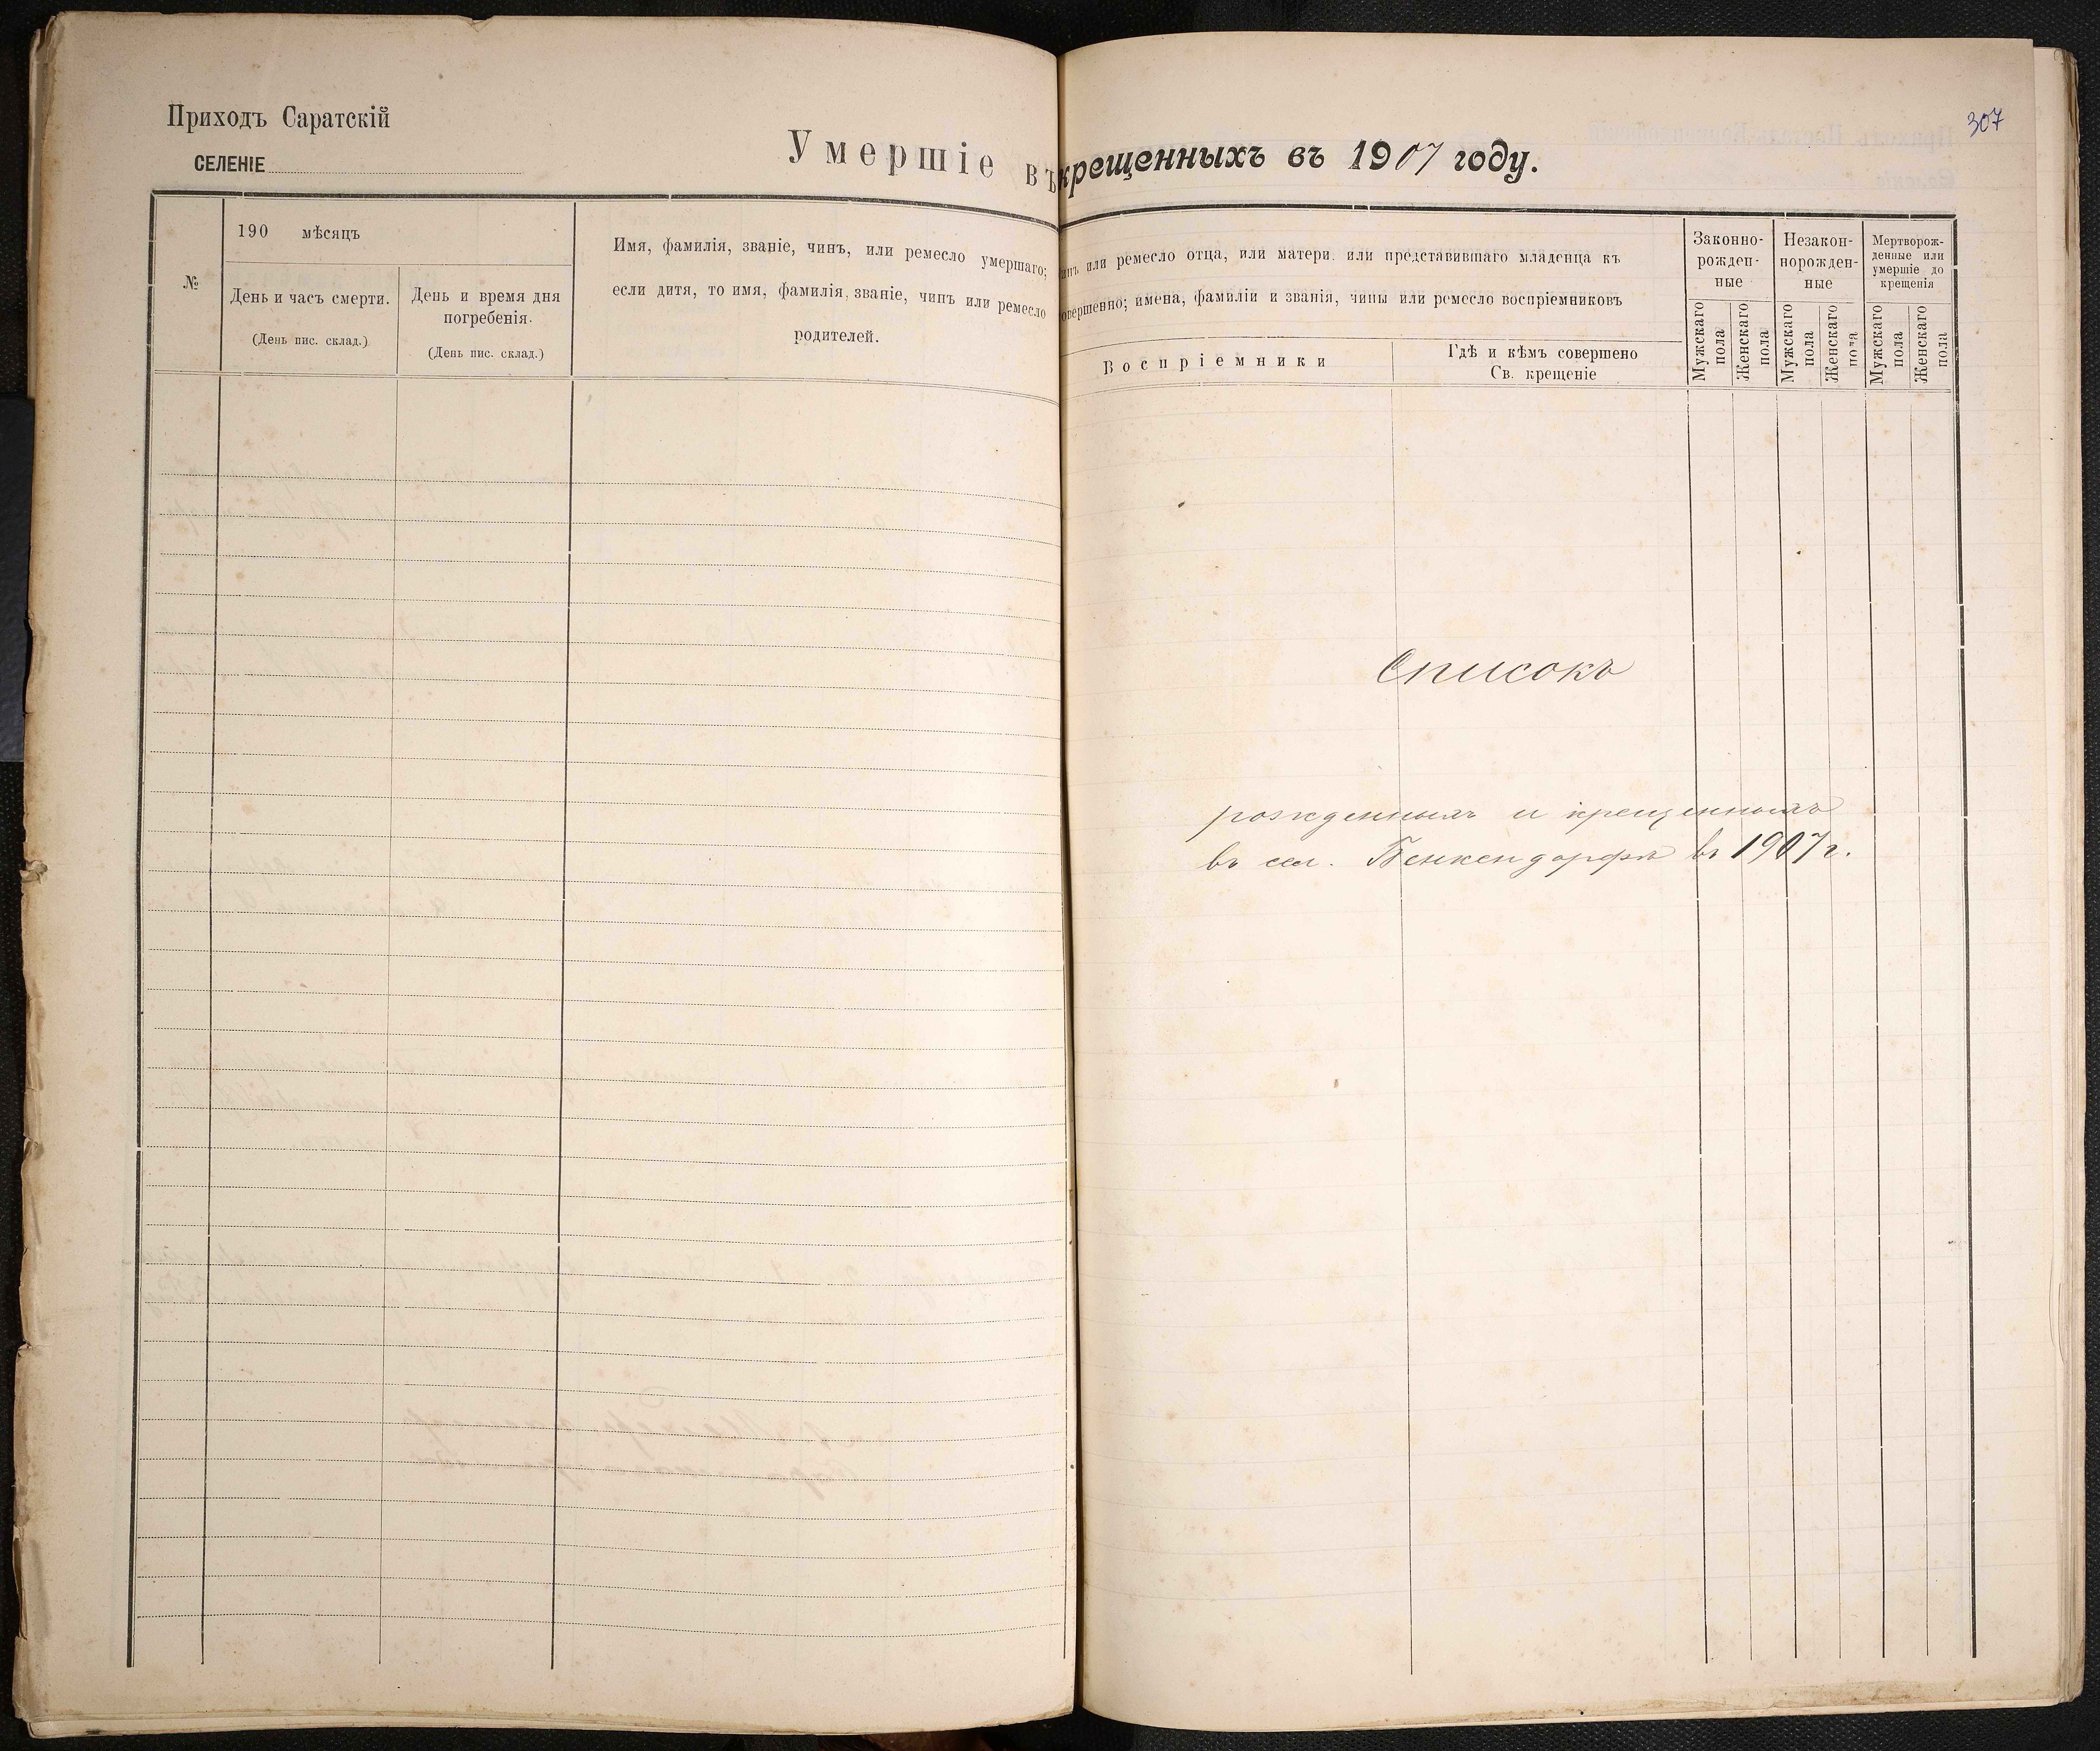 Приходъ Саратскій
СЕЛЕНІЕ
Умершіе въ
№
190 мѣсяцъ
День и часъ смерти.
(День пис. склад.)
День и время дня
погребенія.
(День пис. склад.)
Имя, фамилія, званіе, чинъ, или ремесло умершаго;
если дитя, то имя, фамилія, званіе, чинъ или ремесло
родителей.
307
крещенныхъ въ 1907 году.
инъ или ремесло отца, или матери. или представившаго младенца къ
овершенно; имена, фамиліи и званія, чины или ремесло воспріемниковъ
Воспріемники
Гдѣ и кѣмъ совершено
Св. крещеніе
Законно-
рожден-
ные
Незакон-
норожден-
ные
Мертворож-
денные или
умершіе до
крещенія
Мужскаго
пола
Женскаго
пола
Мужскаго
пола
Женскаго
пола
Мужскаго
пола
Женскаго
пола
Списокъ
рожденныхъ и крещенныхъ
въ сел. Бенкендорфѣ въ 1907 г.